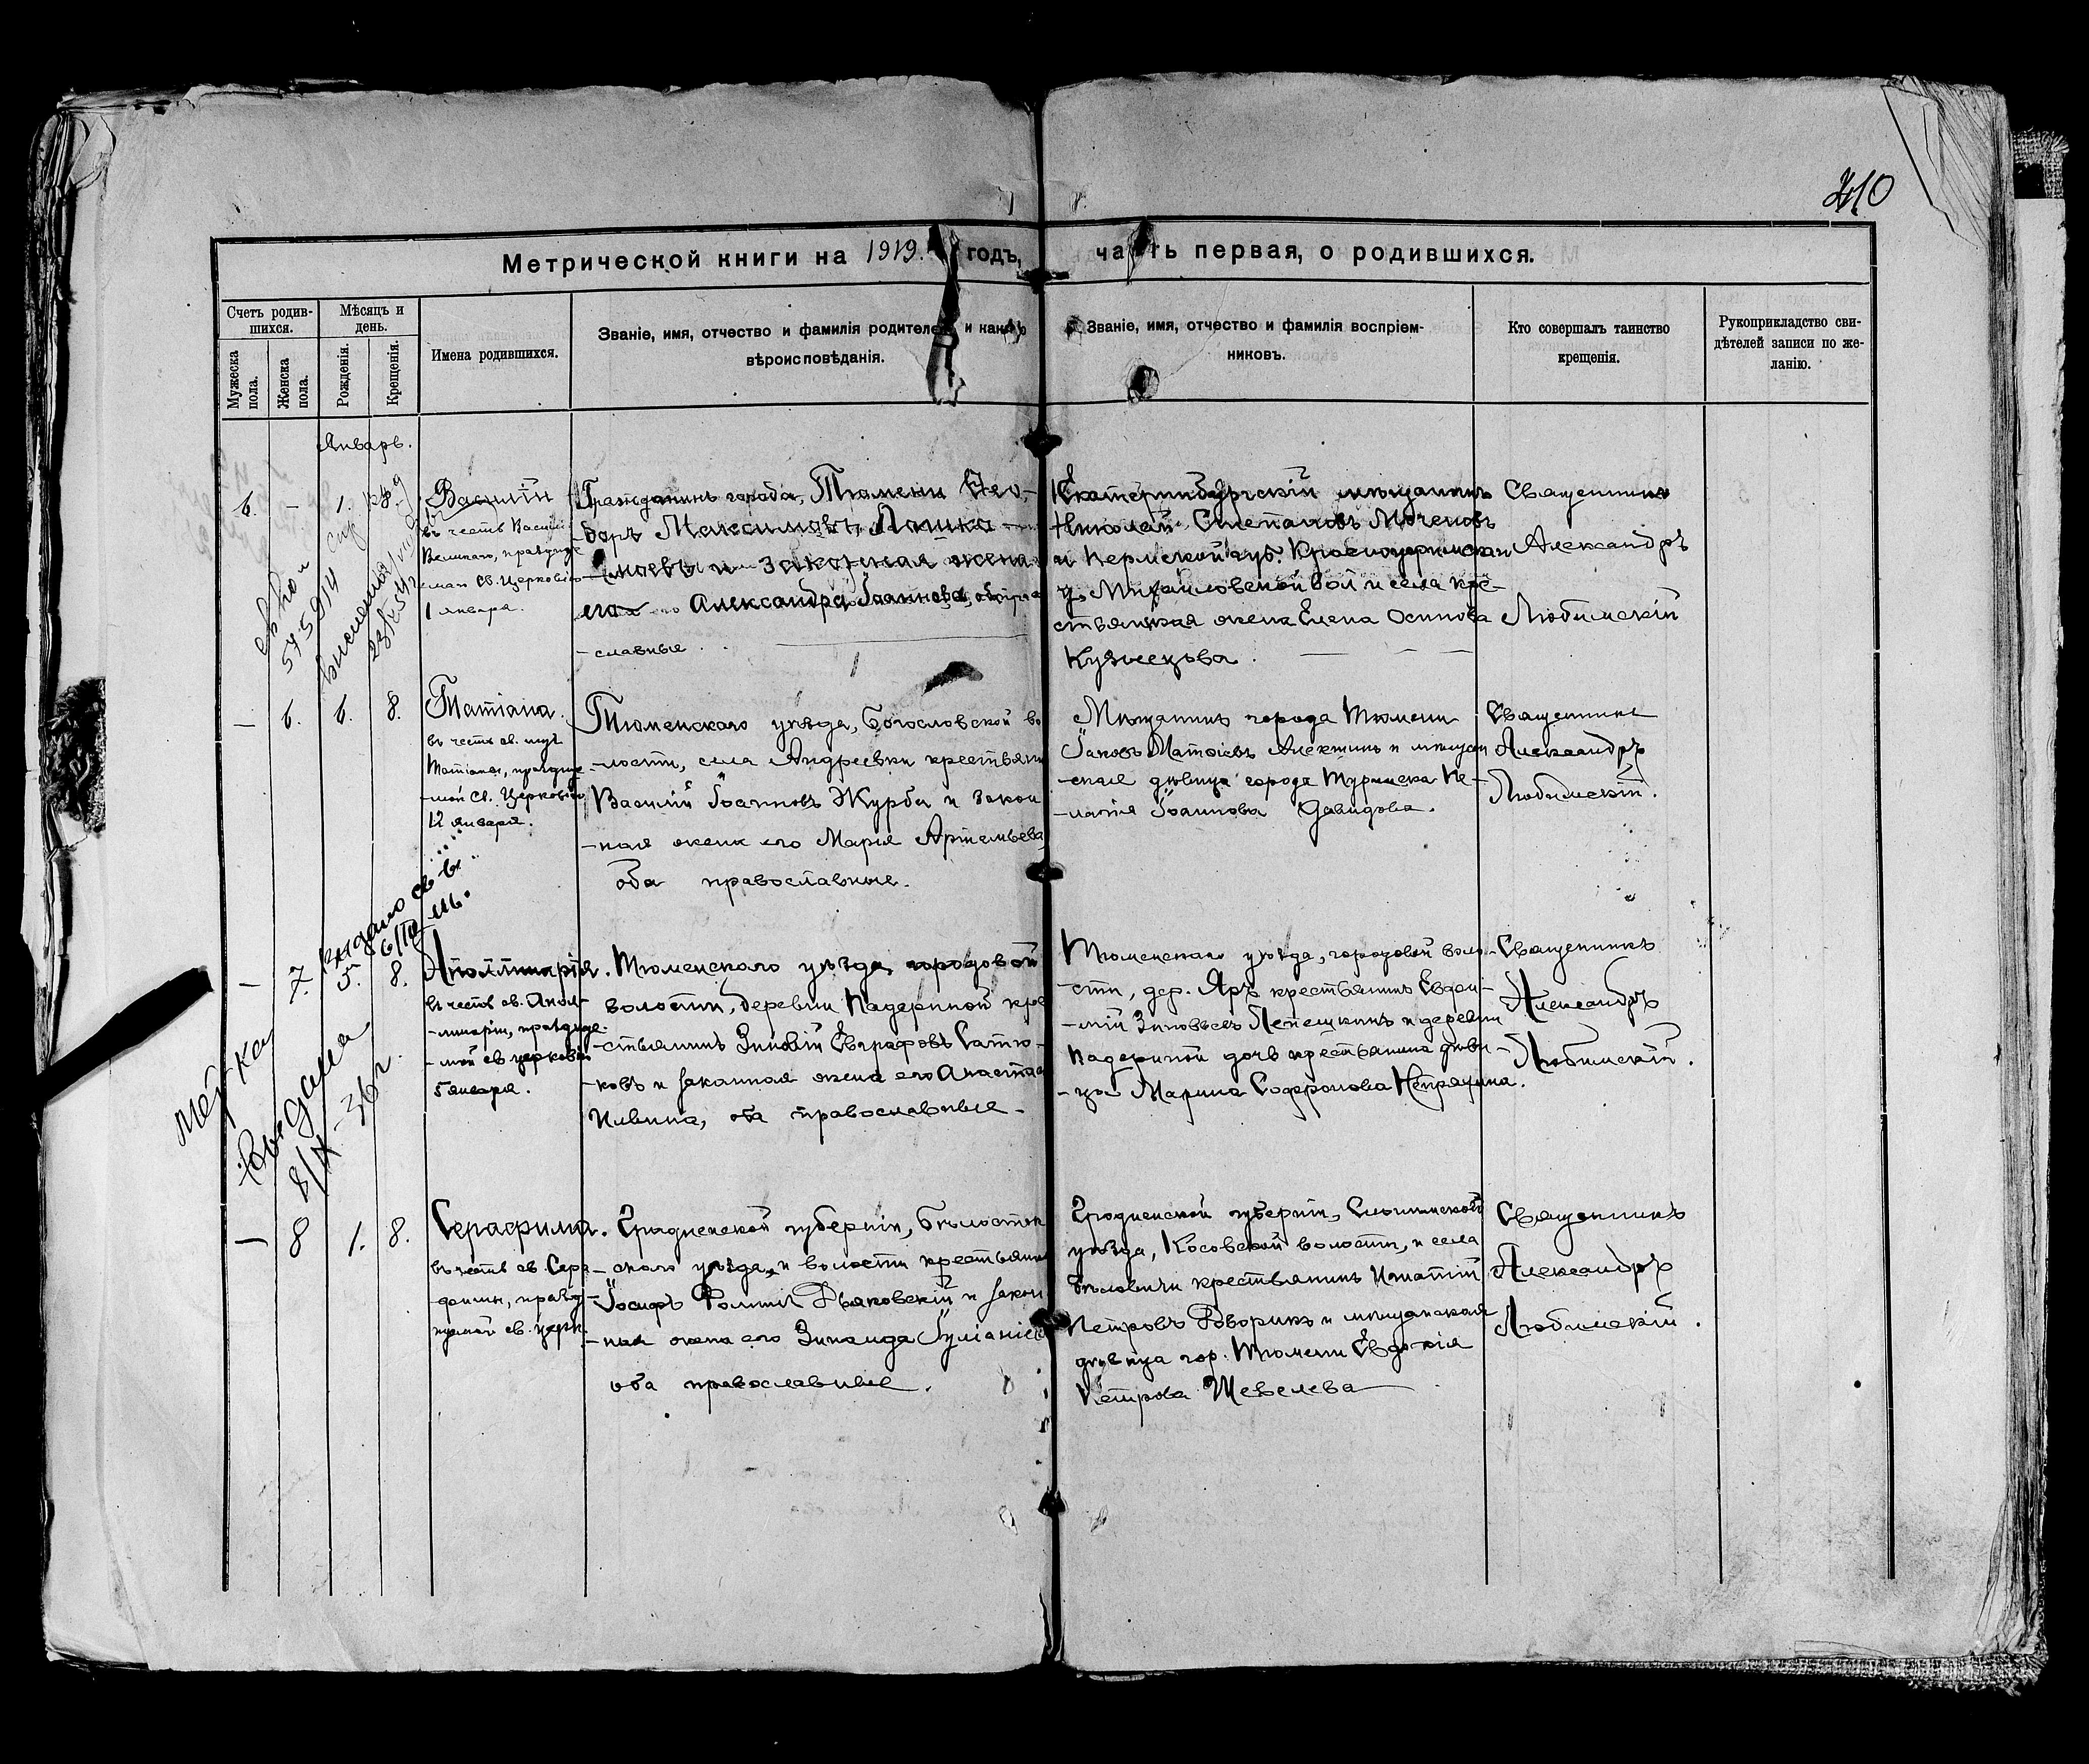 410
Метрической книги на 1919 годъ, часть первая, о родившихся.
Счетъ родив-
шихся.
Мѣсяцъ и
день.
Мужеска
пола.
Женска
пола.
Рожденія.
Крещенія.
Имена родившихся.
Званіе, имя, отчество и фамилія родителей и какого
вѣроисповѣданія.
Званіе, имя, отчество и фамилія воспріем-
никовъ.
Кто совершалъ таинство
крещенія.
Рукоприкладство сви-
дѣтелей записи по же-
ланію.
Январь.
6. - 1.
Василій
въ честь Васил.
Великаго, празднуе
мая Св. Церковію
1 января.
Гражданинъ города Тюмени Ѳео-
доръ Максимовъ
и законная жена
его Александра Іоаннова, оба право
-славные.
Екатеринбургскій мѣщанинъ
Николай Степановъ
и Пермской губ. Красноуфимскаго
у. Михайловской вол и села кре-
стьянская жена Елена Осипова
Кузнецова.
Священникъ
Александръ
Любимскій
- 6. 6. 8.
Татіана.
въ честь св. муч
Татіаны, празднуе
-мой Св. Церковію
12 января.
Тюменскаго уѣзда, Богословской во
-лости, села Андреевки крестьянин
Василій Іоанновъ Журба и закон
-ная жена его Марія Артемьева,
оба православные.
Мѣщанинъ города Тюмени
Іаковъ Матѳіевъ Алекшинъ и мѣщан
-ская дѣвица города Туринска Пе-
-лагія Іоаннова Давидова.
Священникъ
Александръ
Любимскій.
Выдано св-во
6/IV
- 7. 5. 8.
Аполлинарія.
въ честь св. Апол-
-линаріи, празднуе-
-мой св церковію
5 января.
Тюменскаго уѣзда, городовой
волости, деревни Падериной кре
-стьянинъ Зиновій Евграфовъ Сатю-
-ковъ и законная жена его Анастас
Ильина, оба православные.
Тюменскаго уѣзда, городовой воло-
-сти, дер. Яръ крестьянинъ Евфи-
-мій Зиновьевъ Лепешкинъ и деревни
Падериной дочь крестьянина дѣви-
-ца Марина Софронова
Священникъ
Александръ
Любимскій.
Метрка
Выдана
8/X-36 г.
- 8 1. 8.
Серафима.
въ честь св Сера-
-фимы, празд-
нуемой св. церк.
Гродненской губерніи, Бѣлосток
-скаго уѣзда, и волости крестьянин
Іосифъ Фоминъ Дьяковскій и закон
-ная жена его Зинаида Іуліаніев
оба православные.
Гродненской губерніи, Слонимскаго
уѣзда, Косовской волости, и села
Бѣловичи крестьянинъ Игнатій
Петровъ Говорикъ и мѣщанская
дѣвица гор. Тюмени Евдокія
Петрова Шевелева
Священникъ
Александръ
Любимскій.